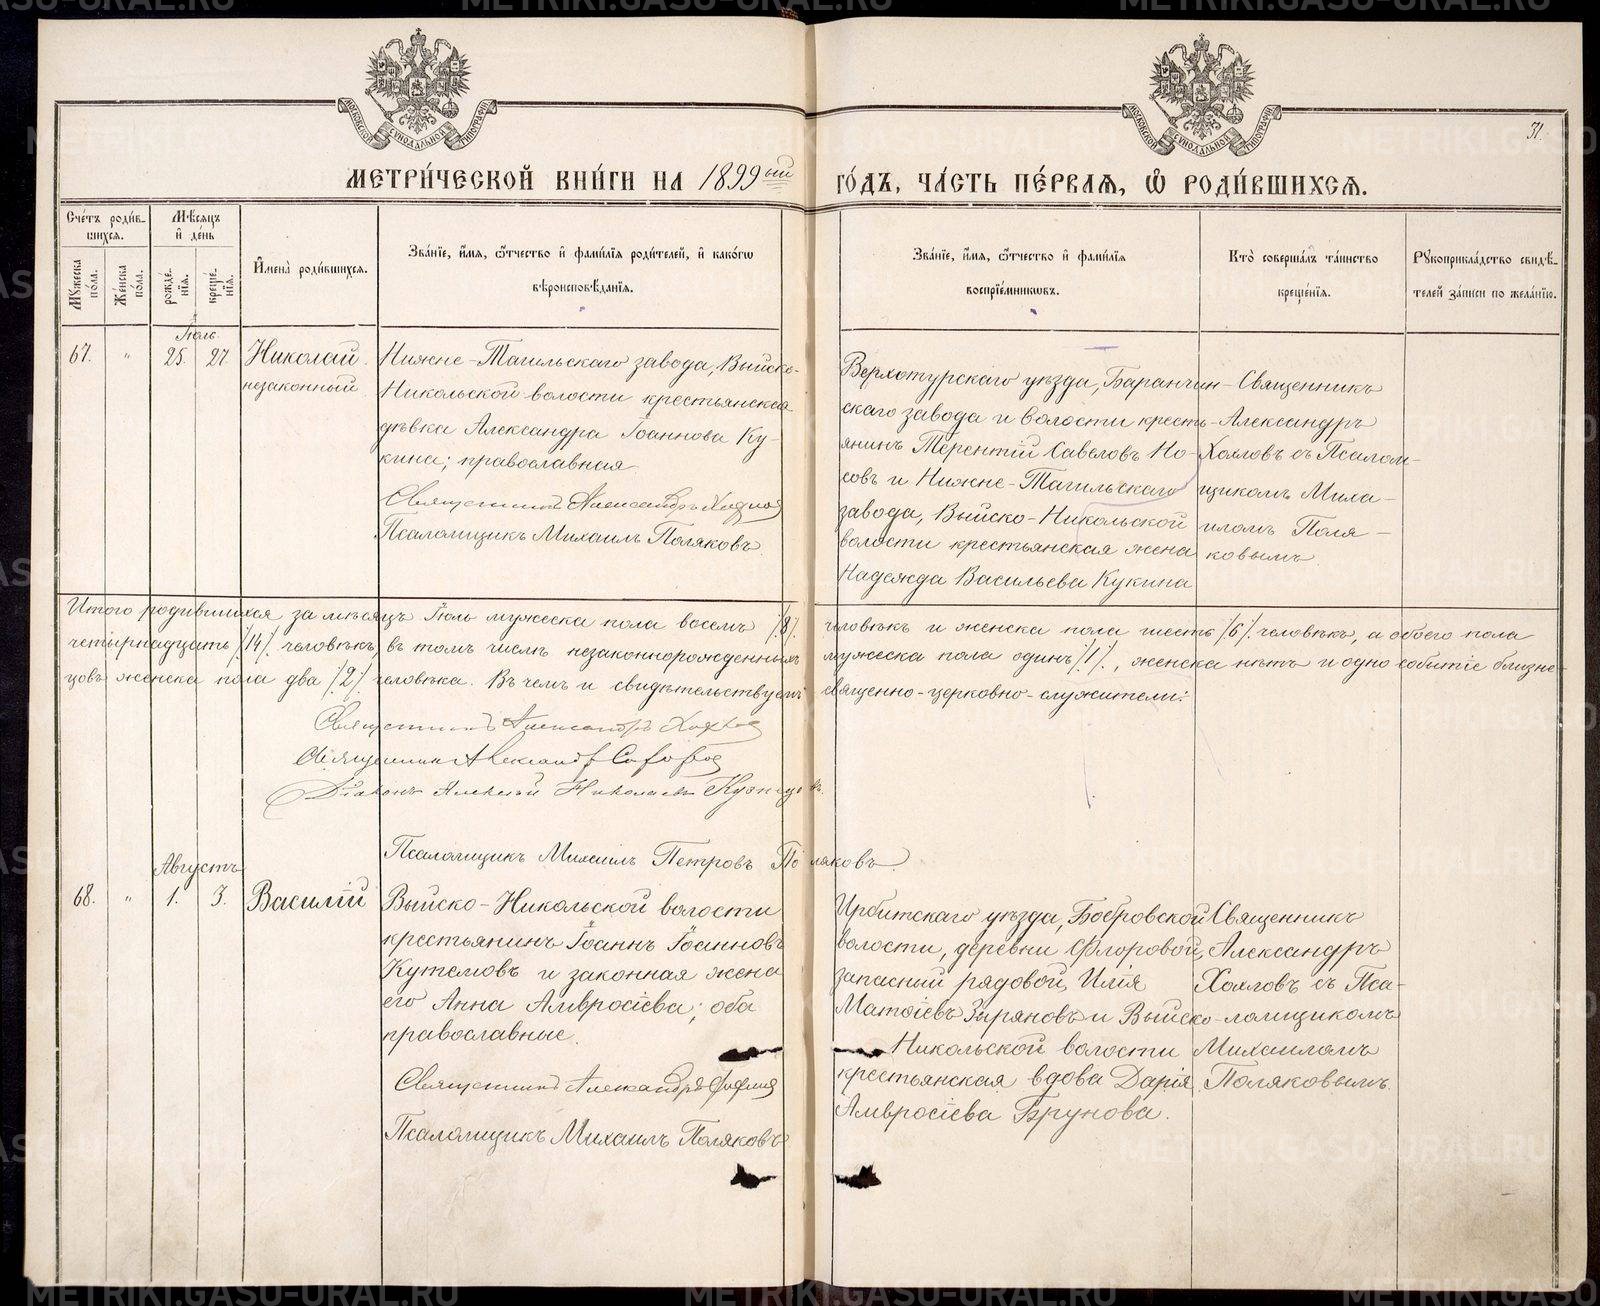 31.
МОСКОВСКОЙ СѴНОДАЛЬНОЙ ТИПОГРАФІИ
МОСКОВСКОЙ СѴНОДАЛЬНОЙ ТИПОГРАФІИ
МЕТРИ́ЧЕСКОЙ КНИ́ГИ НА 1899ый ГО́ДЪ, ЧА́СТЬ ПЕ́РВАЯ, Ѡ҆ РОДИ́ВШИХСЯ.
Сче́тъ роди́в-
шихся.
Мꙋжеска по́ла.
Же́нска по́ла.
Мѣ́сяцъ и҆ де́нь
рожде́-нїѧ.
креще́-нїѧ.
И҆мена̀ роди́вшихся.
Зва́нїе, и҆́мѧ, ѻ҆́тчество и҆ фами́лїѧ роди́телей, и҆ како́гѡ
вѣроисповѣ́данїѧ.
Зва́нїе, и҆́мѧ, ѻ҆́тчество и҆ фами́лїѧ
воспрїе́мникѡвъ.
Кто̀ соверша́лъ та́инство
креще́нїѧ.
Рꙋкоприкла́дство свидѣ́-
телей за́писи по жела́нїю.
Іюль
67. " 25. 27 Николай
незаконный
Нижне-Тагильскаго завода, Выйско-
Никольской волости крестьянская
дѣвка Александра Іоаннова Ку-
кина; православная
Священникъ Александръ Хохловъ
Псаломщикъ Михаилъ Поляковъ.
Верхотурскаго уѣзда, Баранчин-
скаго завода и волости кресть-
янинъ Терентій Савеловъ Но-
совъ и Нижне-Тагильскаго
завода, Выйско-Никольской
волости крестьянская жена
Надежда Васильева Кукина
Священникъ
Александръ
Хохловъ съ Псалом-
щикомъ Миха-
иломъ Поля-
ковымъ
Итого родившихся за мѣсяцъ Іюль мужеска пола восемь /8/. человѣкъ и женска пола шесть /6/ человѣкъ, а обоего пола
четырнадцать /14/ человѣкъ, въ томъ числѣ незаконнорожденныхъ мужеска пола одинъ /1/, женска нѣтъ и одно событіе близне-
цовъ женска пола два /2/ человѣка. Въ чемъ и свидѣтельствуемъ священно-церковно-служители:
Священникъ Александръ Хохлов
Священник Александр
Діаконъ Алексѣй Николаевъ Кузнецовъ.
Псаломщикъ Михаилъ Петровъ Поляковъ.
Августъ
68. " 1. 3. Василій
Выйско-Никольской волости
крестьянинъ Іоаннъ Іоанновъ
Кутемовъ и законная жена
его Анна Амвросіева; оба
православные.
Священникъ Александръ
Псаломщикъ Михаилъ Поляковъ
Ирбитскаго уѣзда, Бобровской
волости, деревни Флоровой,
запасный рядовой, Илія
Матѳіевъ Зыряновъ и Выйско-
Никольской волости
крестьянская вдова Дарія
Амвросіева Брунова.
Священникъ
Александръ
Хохловъ съ Пса-
ломщикомъ
Михаиломъ
Поляковымъ.
METRIKI.GASU-URAL.RU